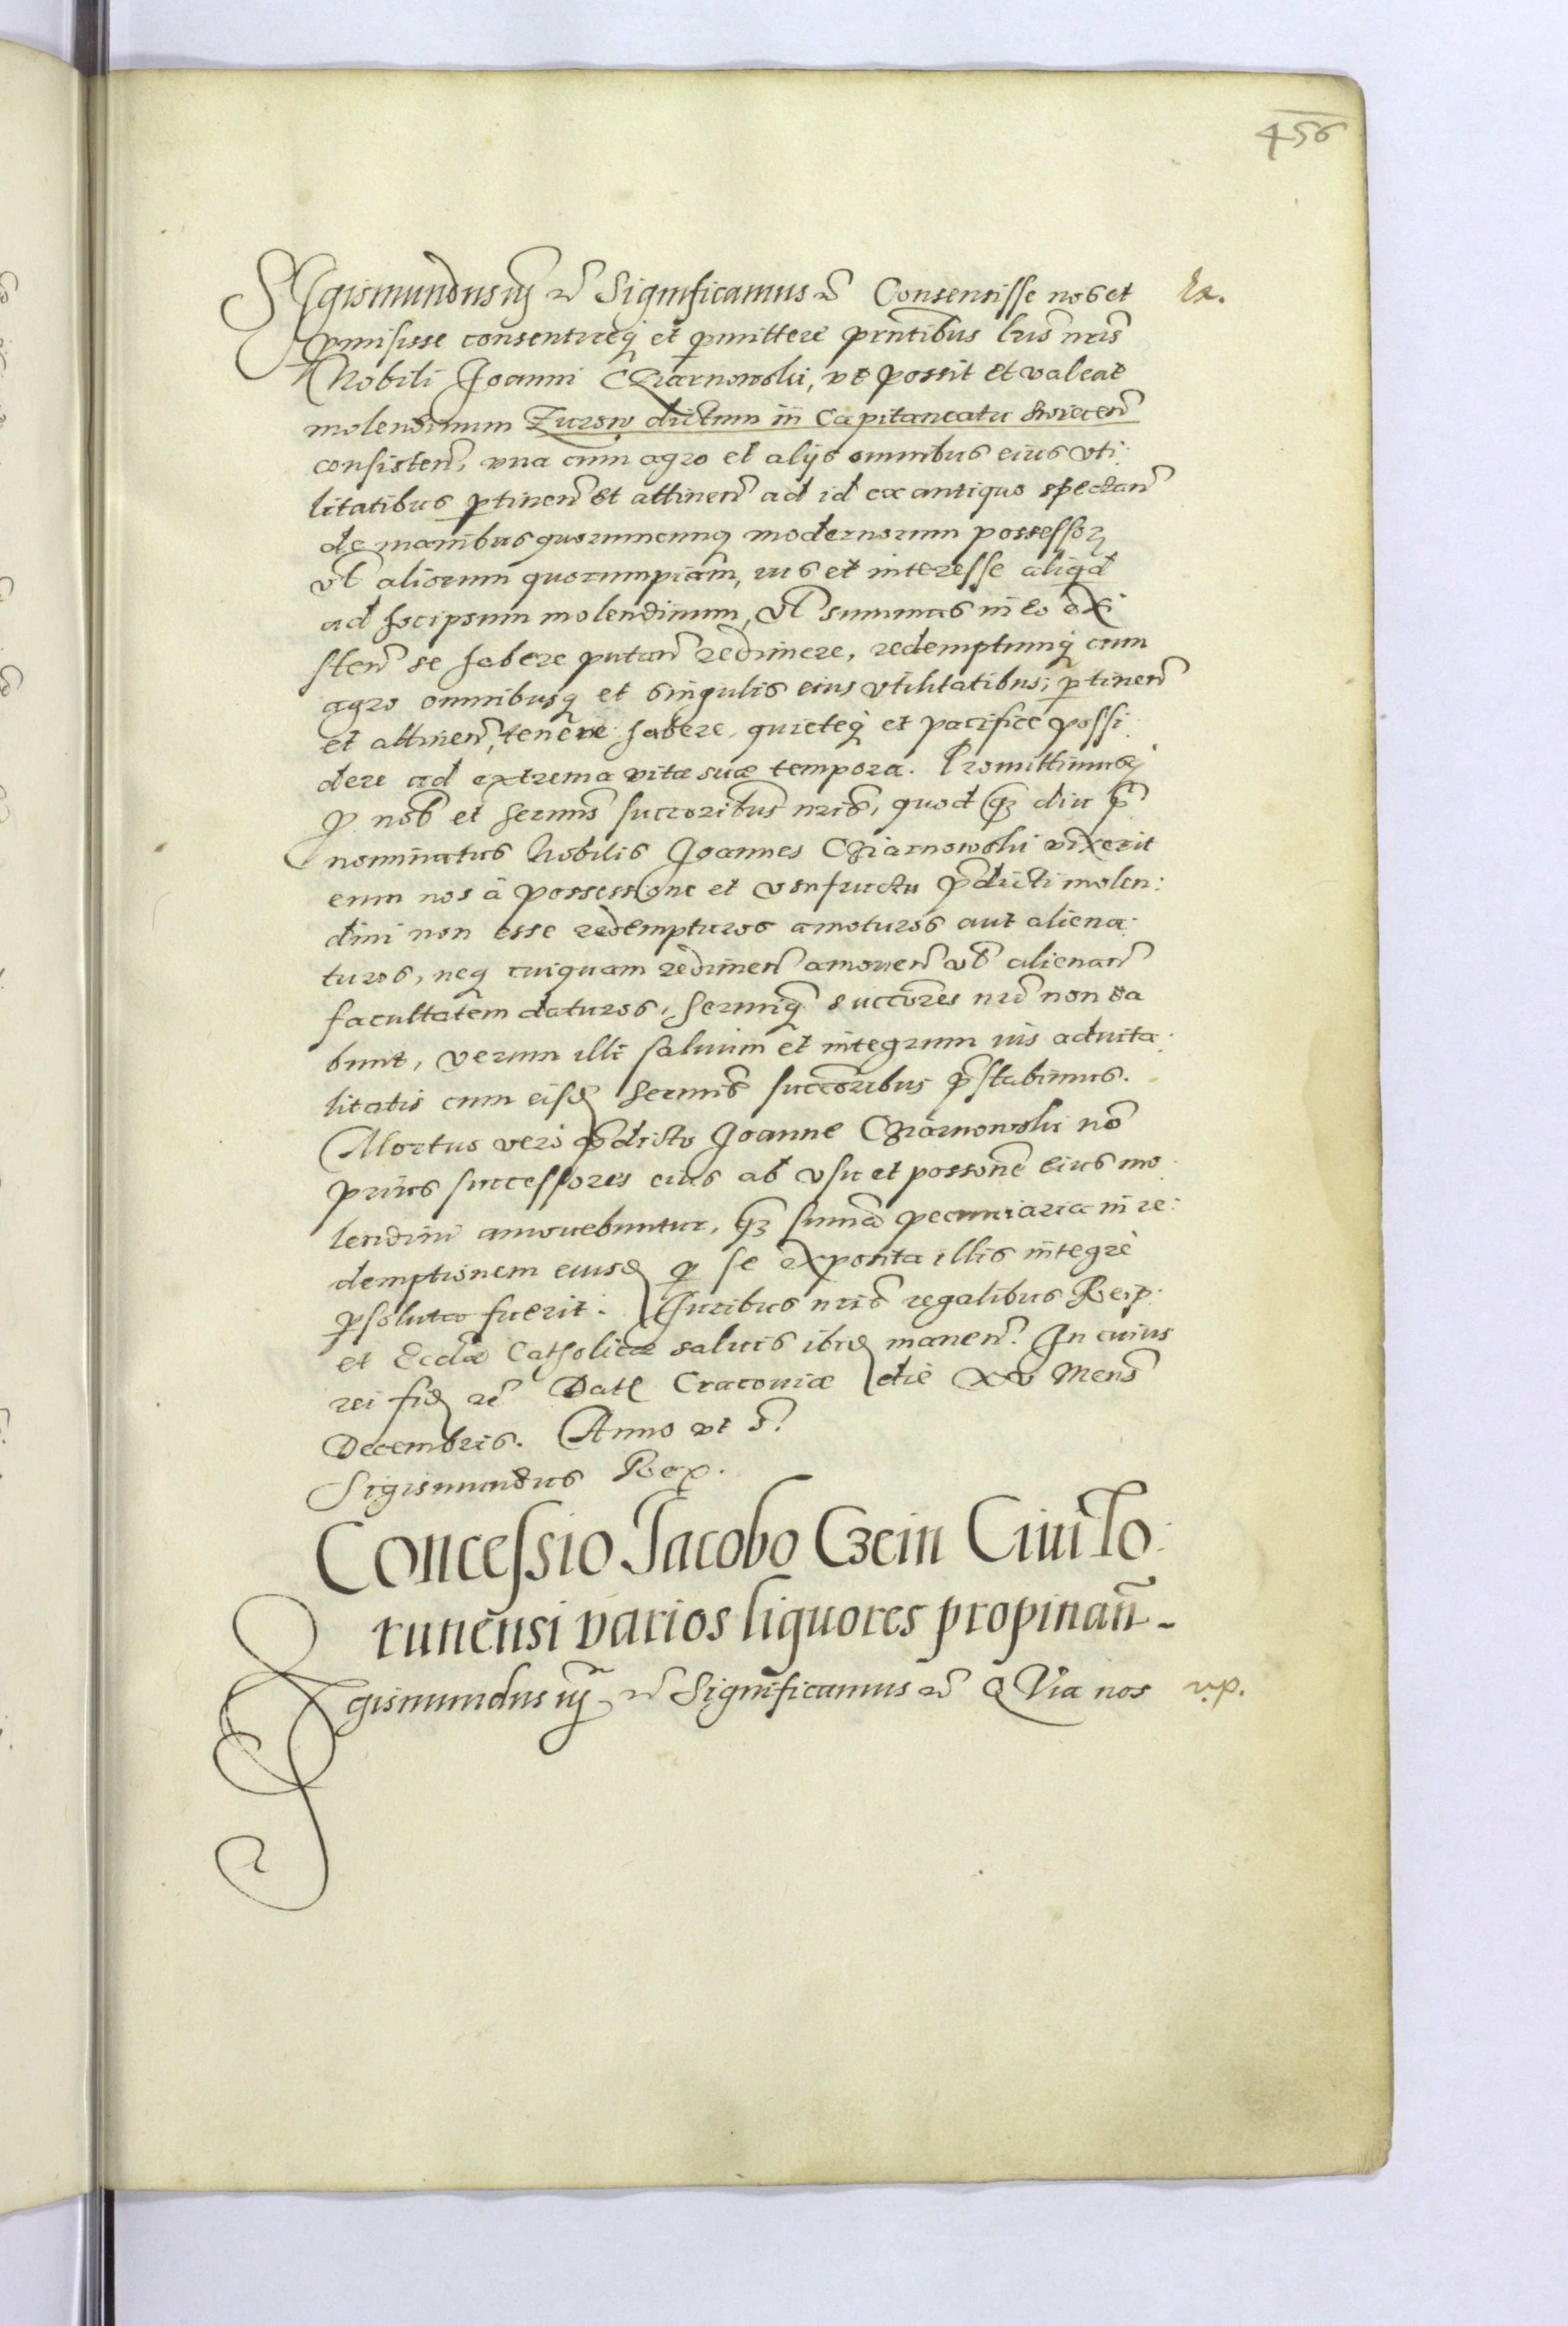 456
SIgismundus iij etc̃ Significamus etc̃ Consensisse nos et Ex.
ꝑmisisse consentireqꝫ et ꝑmittere pñtibus lrĩs nrĩs
Nobili Joanni CZarnowski, vt possit et valeat
molendinum Zurow dictum in Capitaneatu Swiecen̄
consisten̄, vna cum agro et alijs omnibus eius vti:
litatibus ꝑtinen̄ et attinen̄ ad id ex antiquo spectan̄
de manibus quorumcunqꝫ modernorum possessoꝝ
vl̃ aliorum quorumpiam, ius et interesse aliqd̃
ad hocipsum molendinum, vl̃ summas in eo exi
sten̄ se habere putan̄ redimere, redemptumqꝫ cum
agro omnibusqꝫ et singulis eius vtilitatibus, ꝑtinen̄
et attinen̄, tenere habere, quieteqꝫ et pacifice possi:
dere ad extrema vitæ suæ tempora. Promittimusqꝫ
ꝓ nob̃ et Serm̃is succr̃oribus nrĩs, quod qꝫ diu p̃
nominatus Nobilis Joannes Cziarnowski vixerit
eum nos à possessione et vsufructu p̃dicti molen:
dini non esse redempturos amoturos aut aliena:
turos, neqꝫ cuiquam redimen̄ amouen̄ vl̃ alienan̄
facultatem daturos, Serm̃iqꝫ succõres nrĩ non da
bunt, verum illi saluum et integrum ius aduita:
litatis cum eisd̃ Serm̃is succõribus p̃stabimus.
Mortuo vero p̃dicto Joanne Cziarnowski nõ
prius successores eius ab vsu et possõne eius mo
lendini amouebuntur, qꝫ summã pecuniaria in re:
demptionem eiusd̃ ꝑ se exposita illis integrè
ꝑsoluta fuerit. Juribus nrĩs regalibus Reip:
et Eccl̃æ Catholicæ saluis ibid̃ manen̄. In cuius
rei fid̃ etc̃ Dat̃ Cracouiæ die xv Mens̃
Decembris. Anno vt s̃.
Sigismundus Rex.
Concessio Jacobo Czein Ciui To:
runensi varios liquores propinan̄.
SIgismundus iij etc̃ Significamus etc̃ QVia nos v.p.